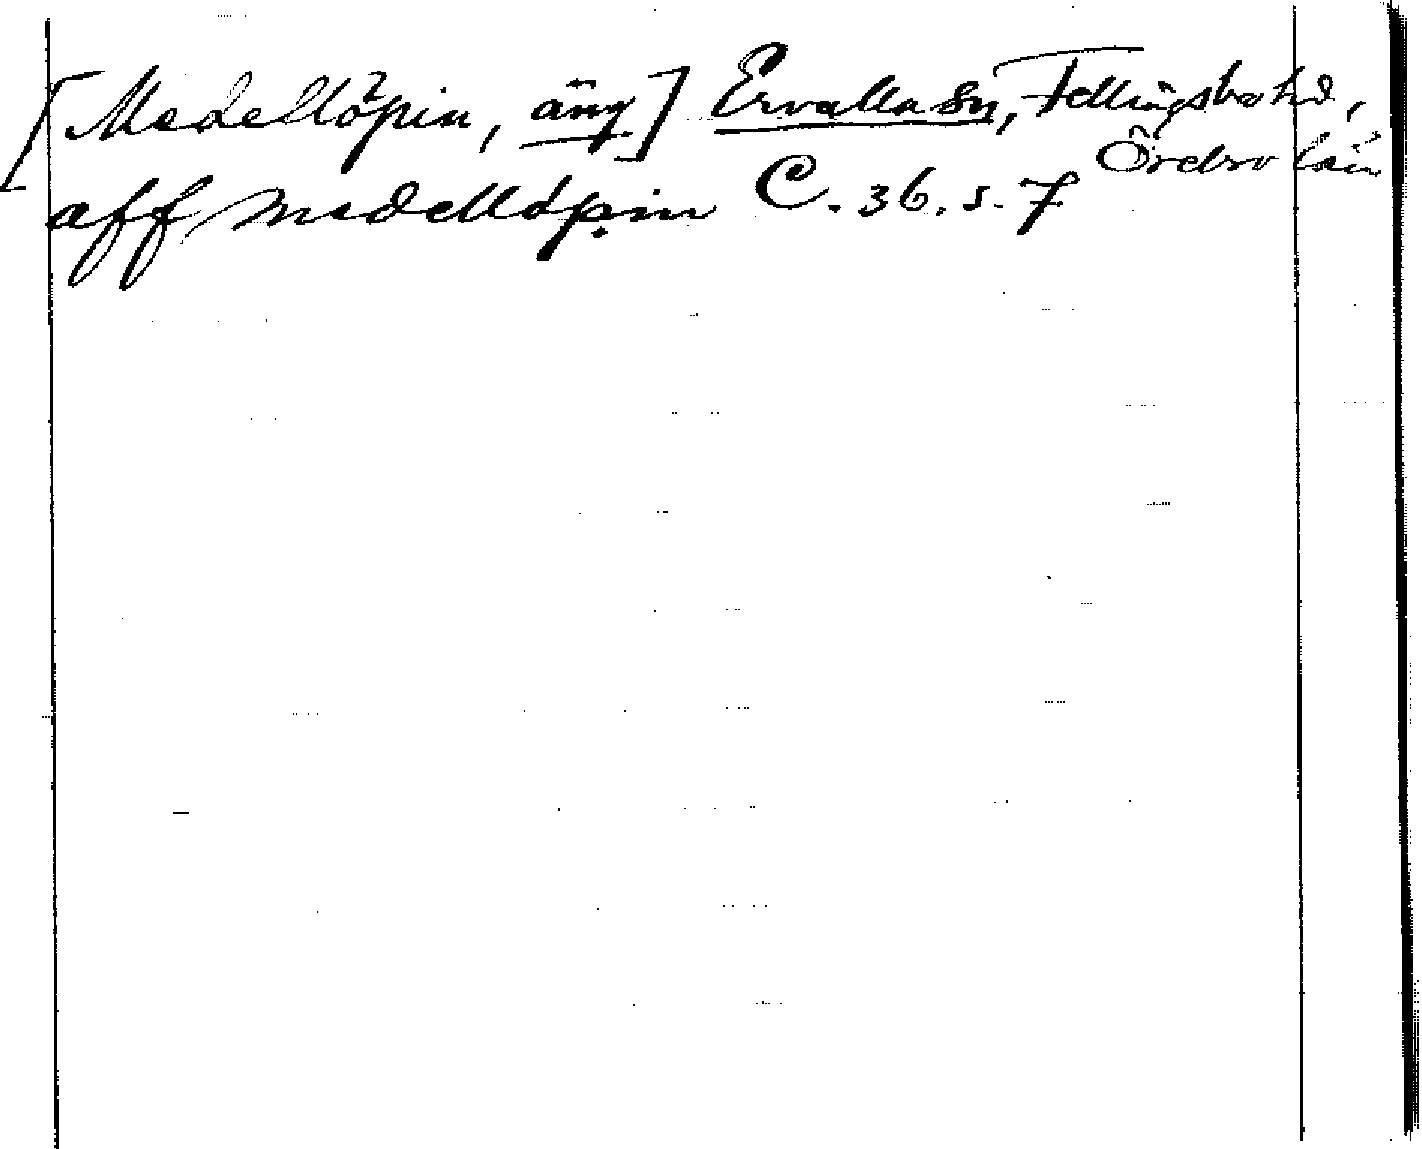 [Medellöpin, äng] Ervalla sn, Fellingsbro hd,
Örebro län
aff medellöpin C. 36. s. 7